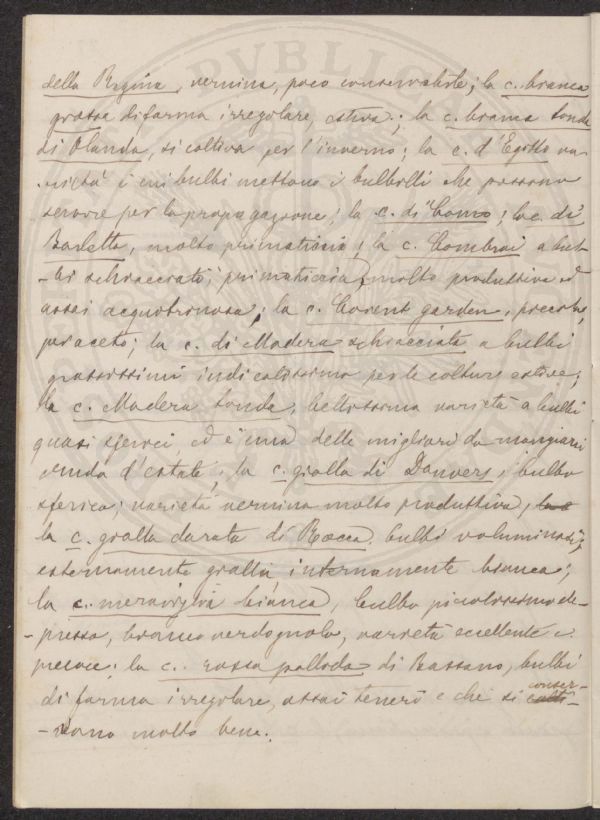 della Regina, vernina, poco conservabile; la c. bianca
grossa di forma irregolare, estiva; la c. bianca tonda
di Olanda, si coltiva per l'inverno; la c. d'Egitto va-
-rietà i cui bulbi mettono i bulbilli che possono
servire per la propagazione; la c. di Como; la c. di
Barletta, molto primaticcia; la c. Cambrai a bul-
-bi schiacciati, primaticcia, molto produttiva ed
assai acquotinosa; la c. Covent garden, precoce,
per aceto; la c. di Madera schiacciata a bulbi
grossissimi indicatissima per le colture estive;
la c. Madera tonda, bellissima varietà a bulbi
quasi sferici, ed è una delle migliori da mangiarsi
cruda d'estate; la c. gialla di Danvers, bulbo
sferico; varietà vernina molto produttiva,
la c. gialla dorata di Rocca bulbi voluminosi,
esternamente gialla, internamente bianca;
la c. meraviglia bianca, bulbo piccolissimo de-
-presso, bianco verdognolo, varietà eccellente e
precoce; la c. rossa pallida di Bassano, bulbi
di forma irregolare, assai teneri e che si conser-
-vano molto bene.